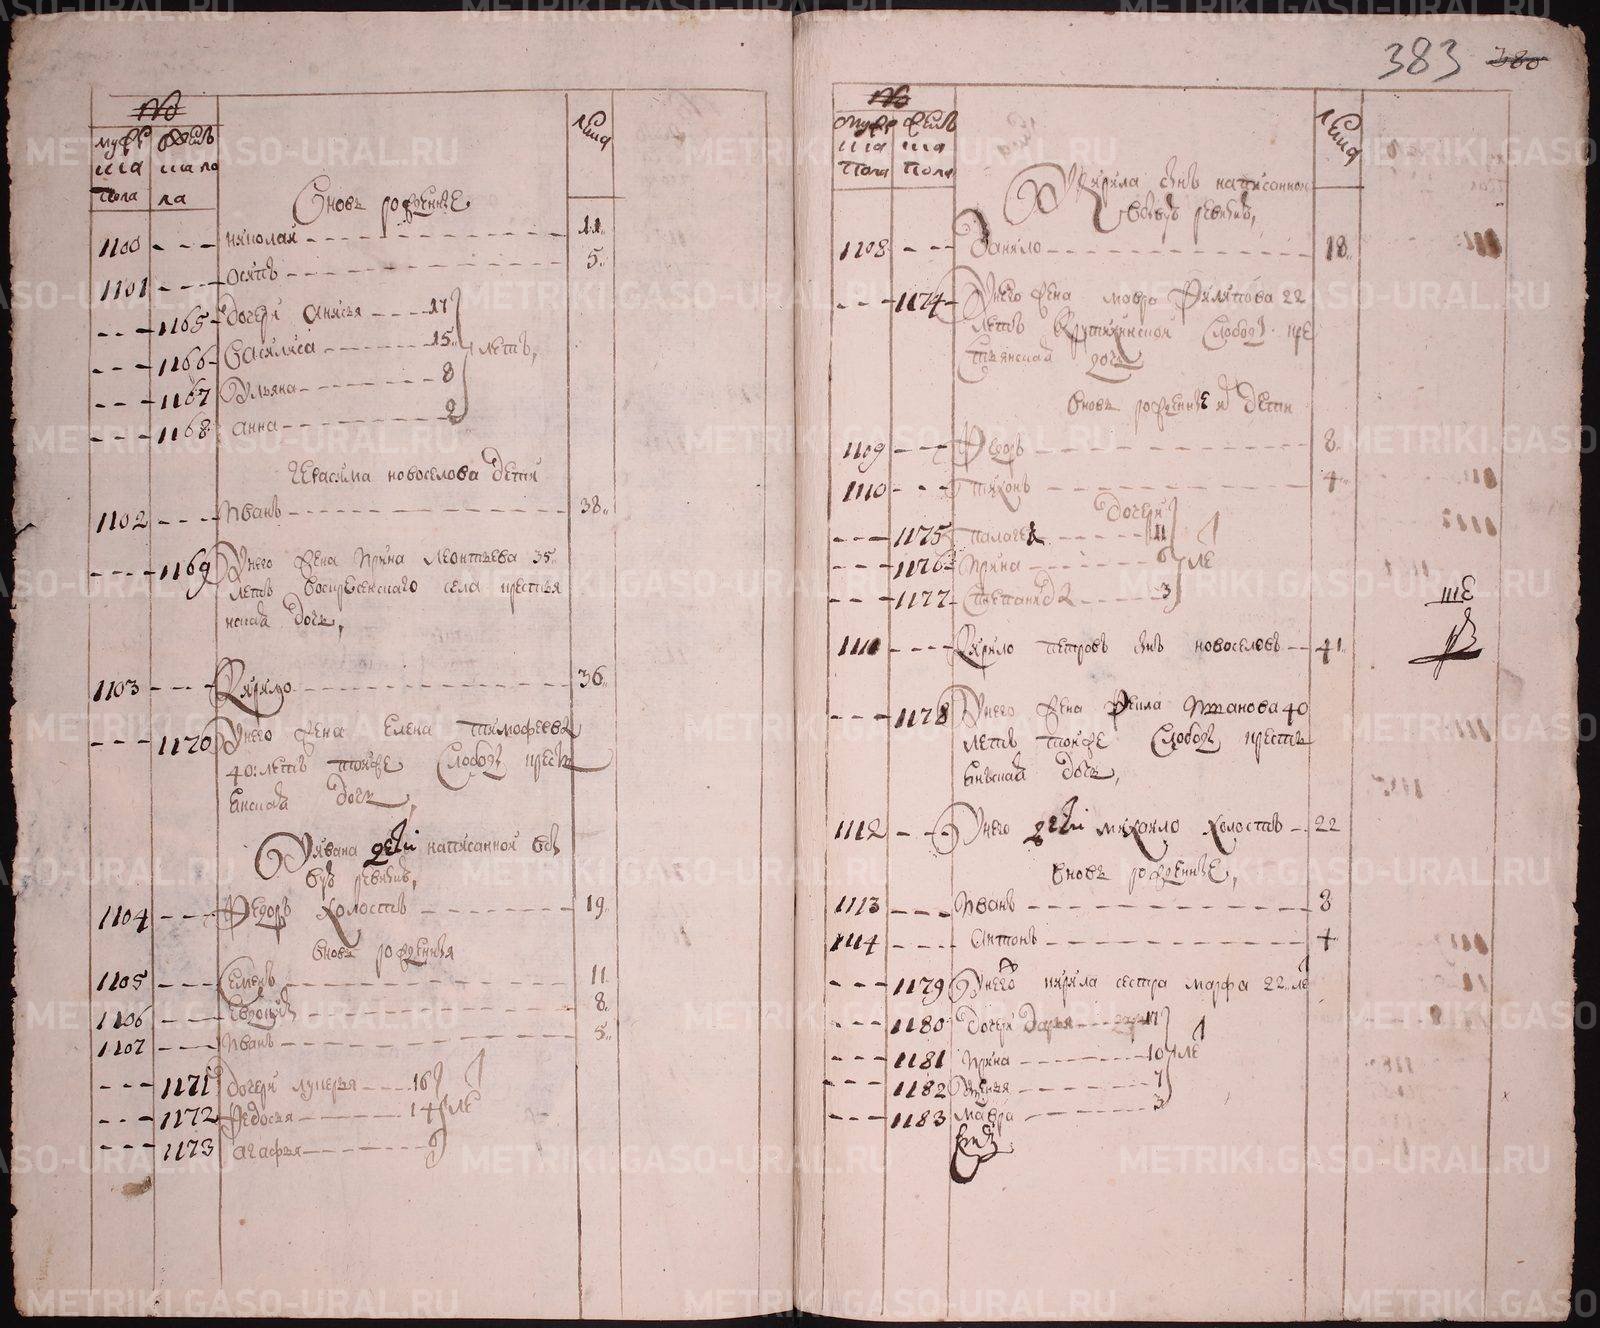 383 380
№
муже
ска
пола
женъ
ска по
ла
лета
Вновь рожденные
1100 николай 11
1101 осипъ 5
1165 дочери анисья 17
1166 василиса 15 летъ,
1167 Ульяна 8
1168 анна 2
Герасима новоселова дети
1102 иванъ 38
1169 У него жена ирина леонтьева 35
летъ воскресенского села крестья
нская дочь,
1103 Кирило 36
1170 У него жена Елена тимофеева
40: летъ тойже слободы кресть
янская дочь,
У ивана дети написанной въ
бывъ ревизию,
1104 Федоръ холостъ 19
вновь рожденныя
1105 семенъ 11
1106 8
1107 иванъ 5
1171 дочери лукерья 16
1172 Федосья 14 ле
1173 агафья 6
№
мужс
ска
пола
женъ
ска
пола
лета
У Кирила сынъ написанной
вбывъ ревизию,
1108 Данило 18
1174 У него жена мавра Филипова 22
летъ Крутихинской слободы кре
стьянская дочь
вновь рожденные дети
1109 Федоръ 8
1110 тихонъ 4
дочери
1175 палагея 11
1176 ирина 6 ле
1177 степанида 3
1111 Кирило петровъ сынъ новоселовъ 41
1178 У него жена Фекла 40
летъ тойже слободы кресть
янская дочь,
1112 У него дети михайло холостъ 22
вновь рожденные,
1113 иванъ 8
1114 антонъ 4
1179 У него кирила сестра марфа 22 ле
1180 дочери дарья 17
1181 ирина 10 ле
1182 7
1183 мавра 3